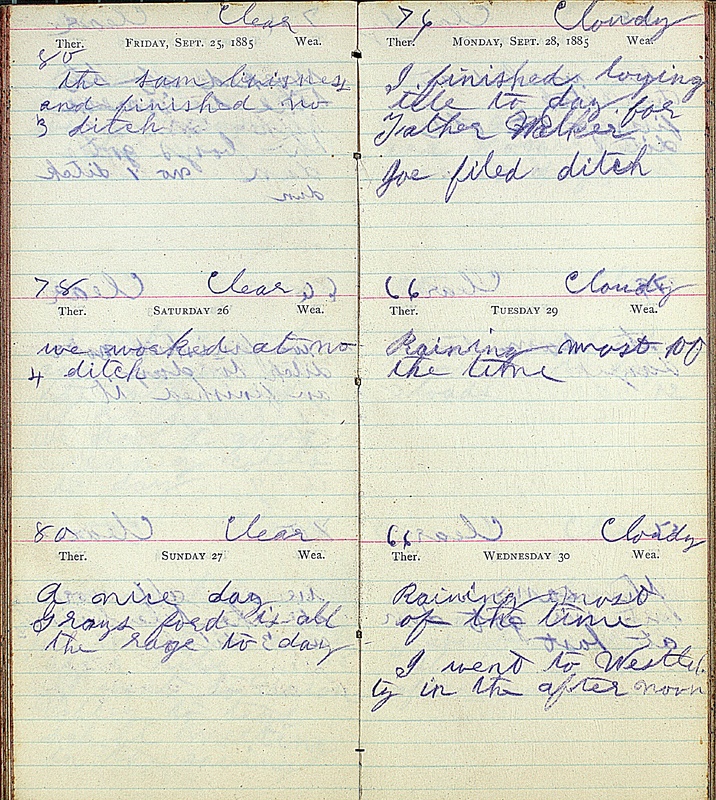 Clear
Ther. FRIDAY, SEPT. 25, 1885 Wea.
80
the sam buisnes
and finished no
3 ditch
78 Clear
Ther. SATURDAY 26 Wea.
we worked at no
4 ditch
80 Clear
Ther. SUNDAY 27 Wea.
A nice day
Grays ford is all
the rage to day
76 Cloudy
Ther. MONDAY, SEPT. 28, 1885 Wea.
I finished loying
tile to day for
Father Welker
Joe filed ditch
66 Cloudy
Ther. TUESDAY 29 Wea.
Raining most of
the time
66 Cloudy
Ther. WEDNESDAY 30 Wea.
Raining most
of the time
I went to Westli
ty in the after noon